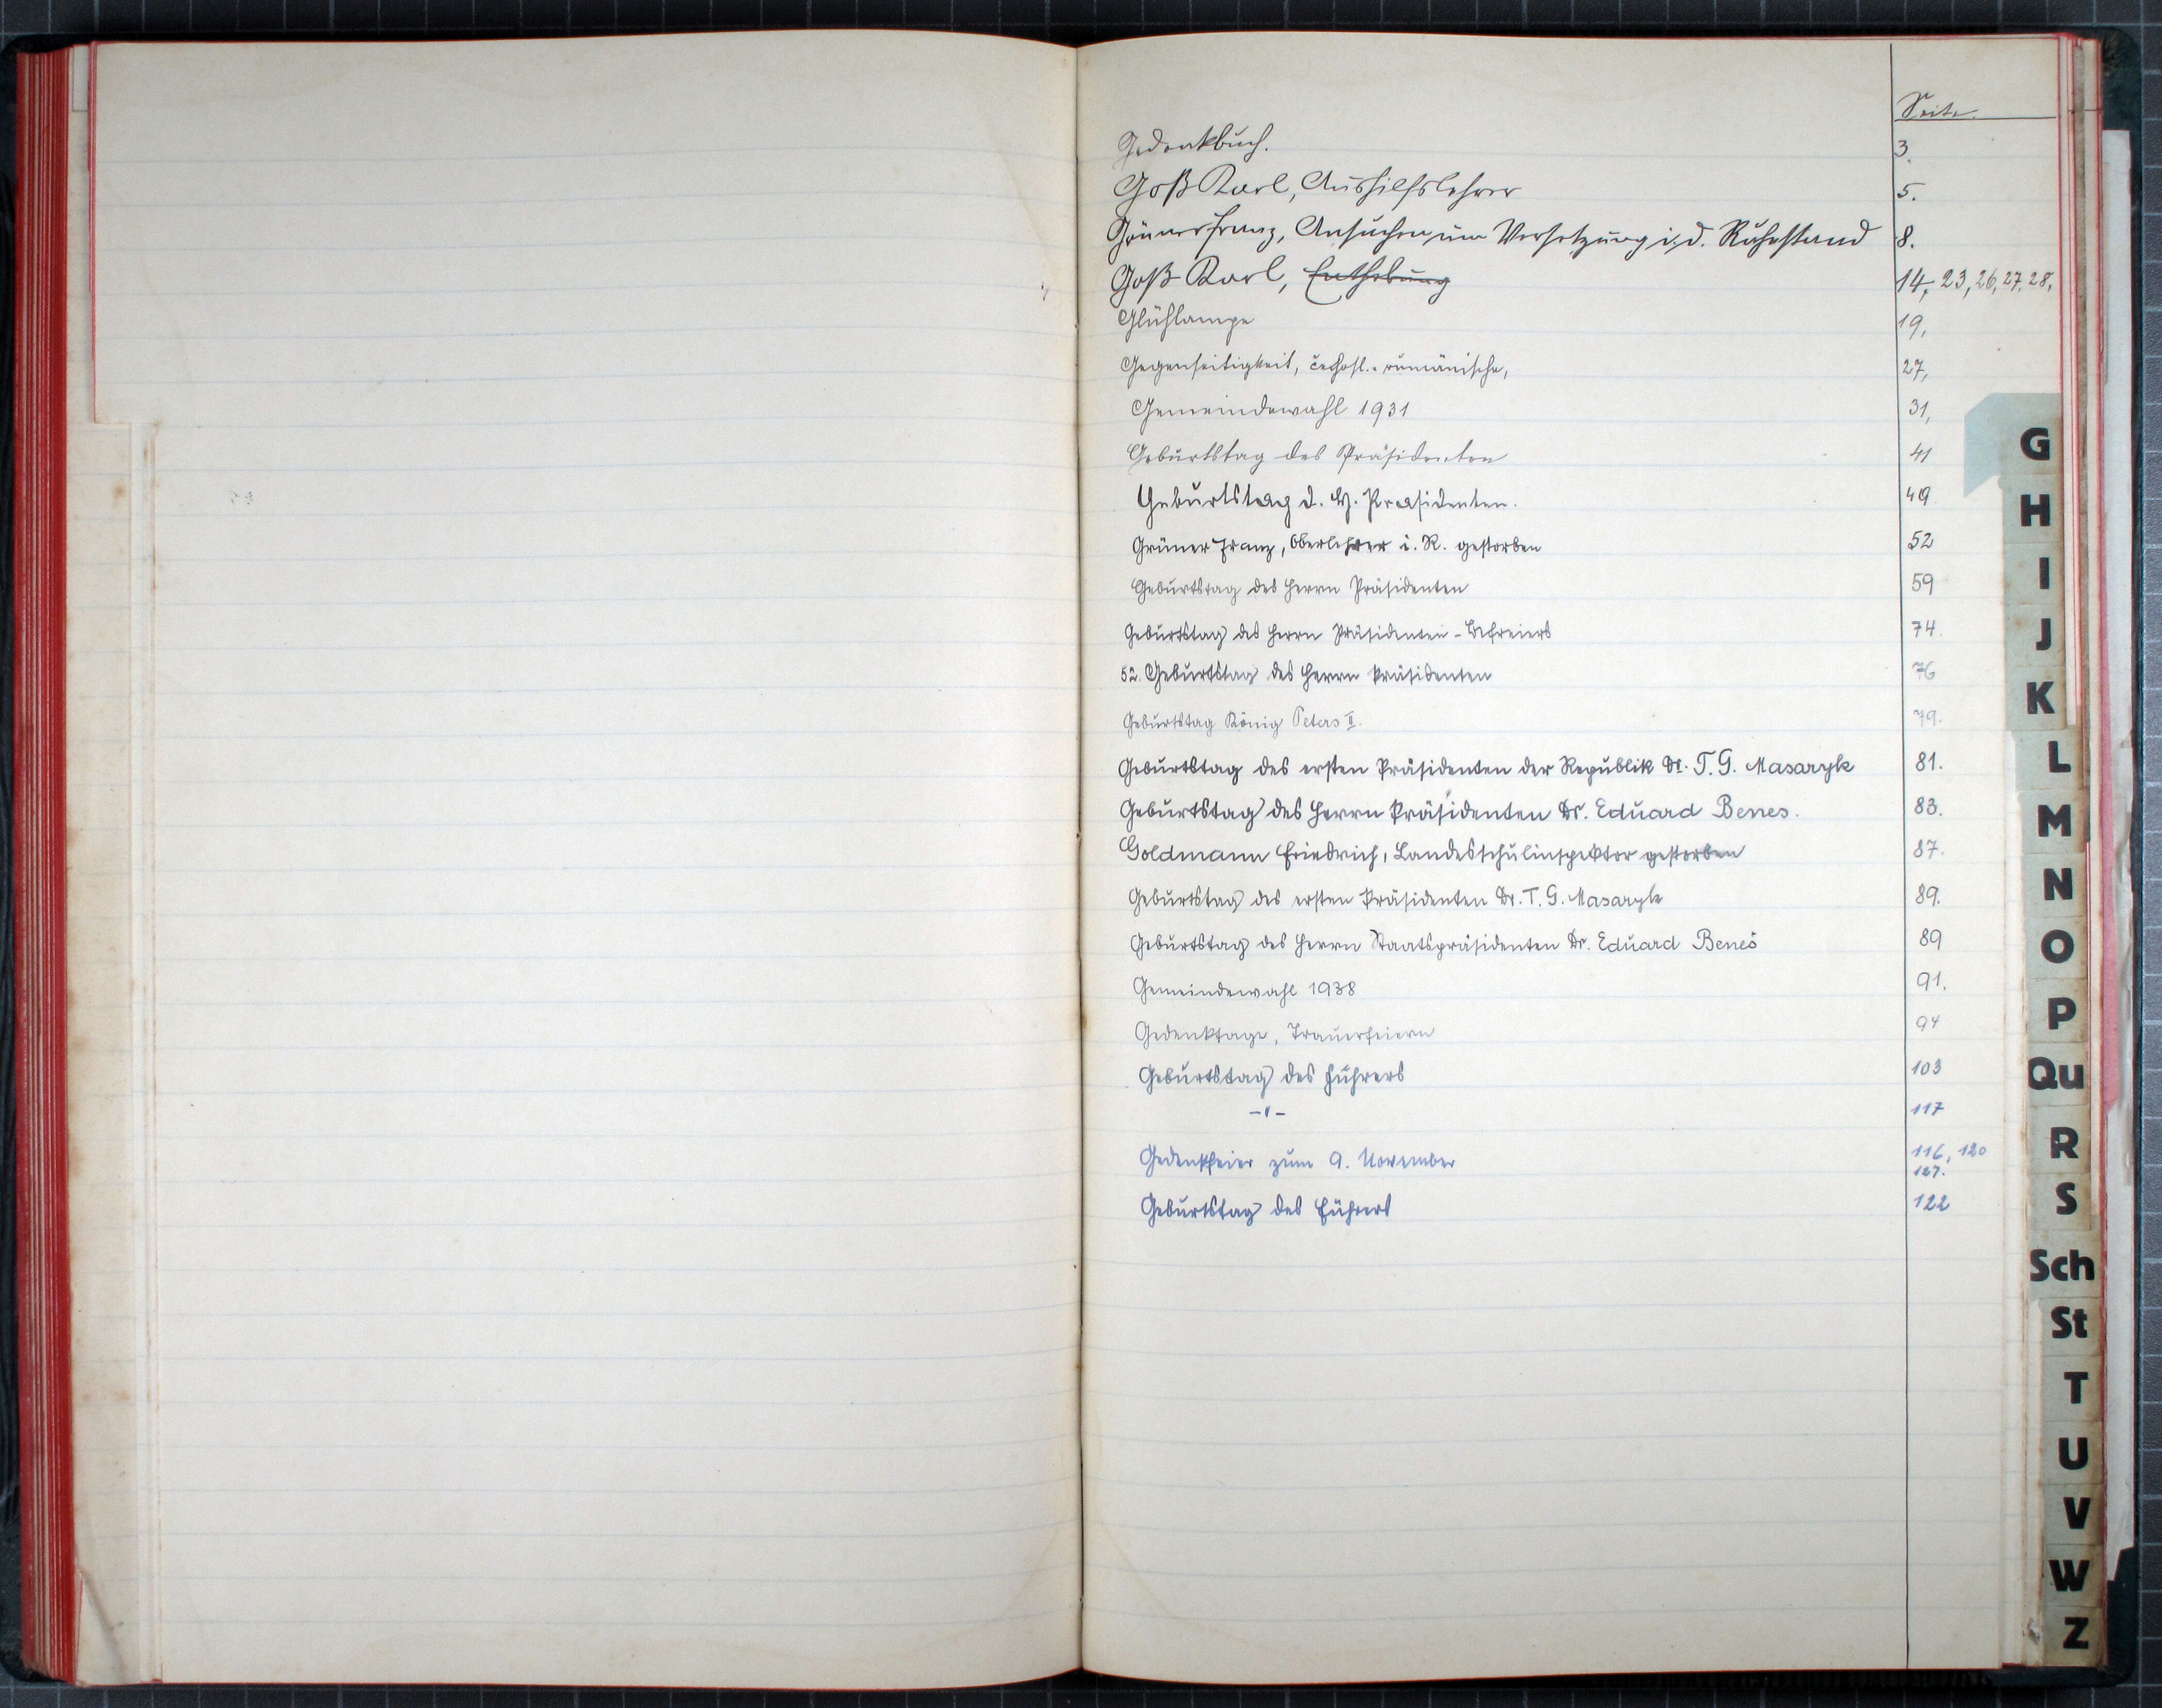 Seite.
Gedenkbuch. 3.
Goß Karl, Aushilfslehrer 5.
Grüner Franz, Ansuchen um Versetzung i. d. Ruhestand 8.
Goß Karl, Enthebung 14, 23, 26, 27, 28,
Glühlampe 19,
Gegenseitigkeit, čechosl.-rumänische, 27,
Gemeindewahl 1931 31,
Geburtstag des Präsidenten 41
Geburtstag d. H. Präsidenten. 49
Grüner Franz, Oberlehrer i. R. gestorben 52
Geburtstag des Herrn Präsidenten 59
Geburtstag des Herrn Präsidenten-Befreiers 74.
52. Geburtstag des Herrn Präsidenten 76
Geburtstag König Peters II. 79.
Geburtstag des ersten Präsidenten der Republik Dr. T. G. Masaryk 81.
Geburtstag des Herrn Präsidenten Dr. Eduard Benes. 83.
Goldmann Friedrich, Landesschulinspektor gestorben 87.
Geburtstag des ersten Präsidenten Dr. T. G. Masaryk 89.
Geburtstag des Herrn Staatspräsidenten Dr. Eduard Beneš 89
Gemeindewahl 1938 91.
Gedenktage, Trauerfeiern 94
Geburtstag des Führers 103
-"- 117
Gedenkfeier zum 9. November 116, 120
127.
Geburtstag des Führers 122
G
H
I
J
K
L
M
N
O
P
Qu
R
S
Sch
St
T
U
V
W
Z